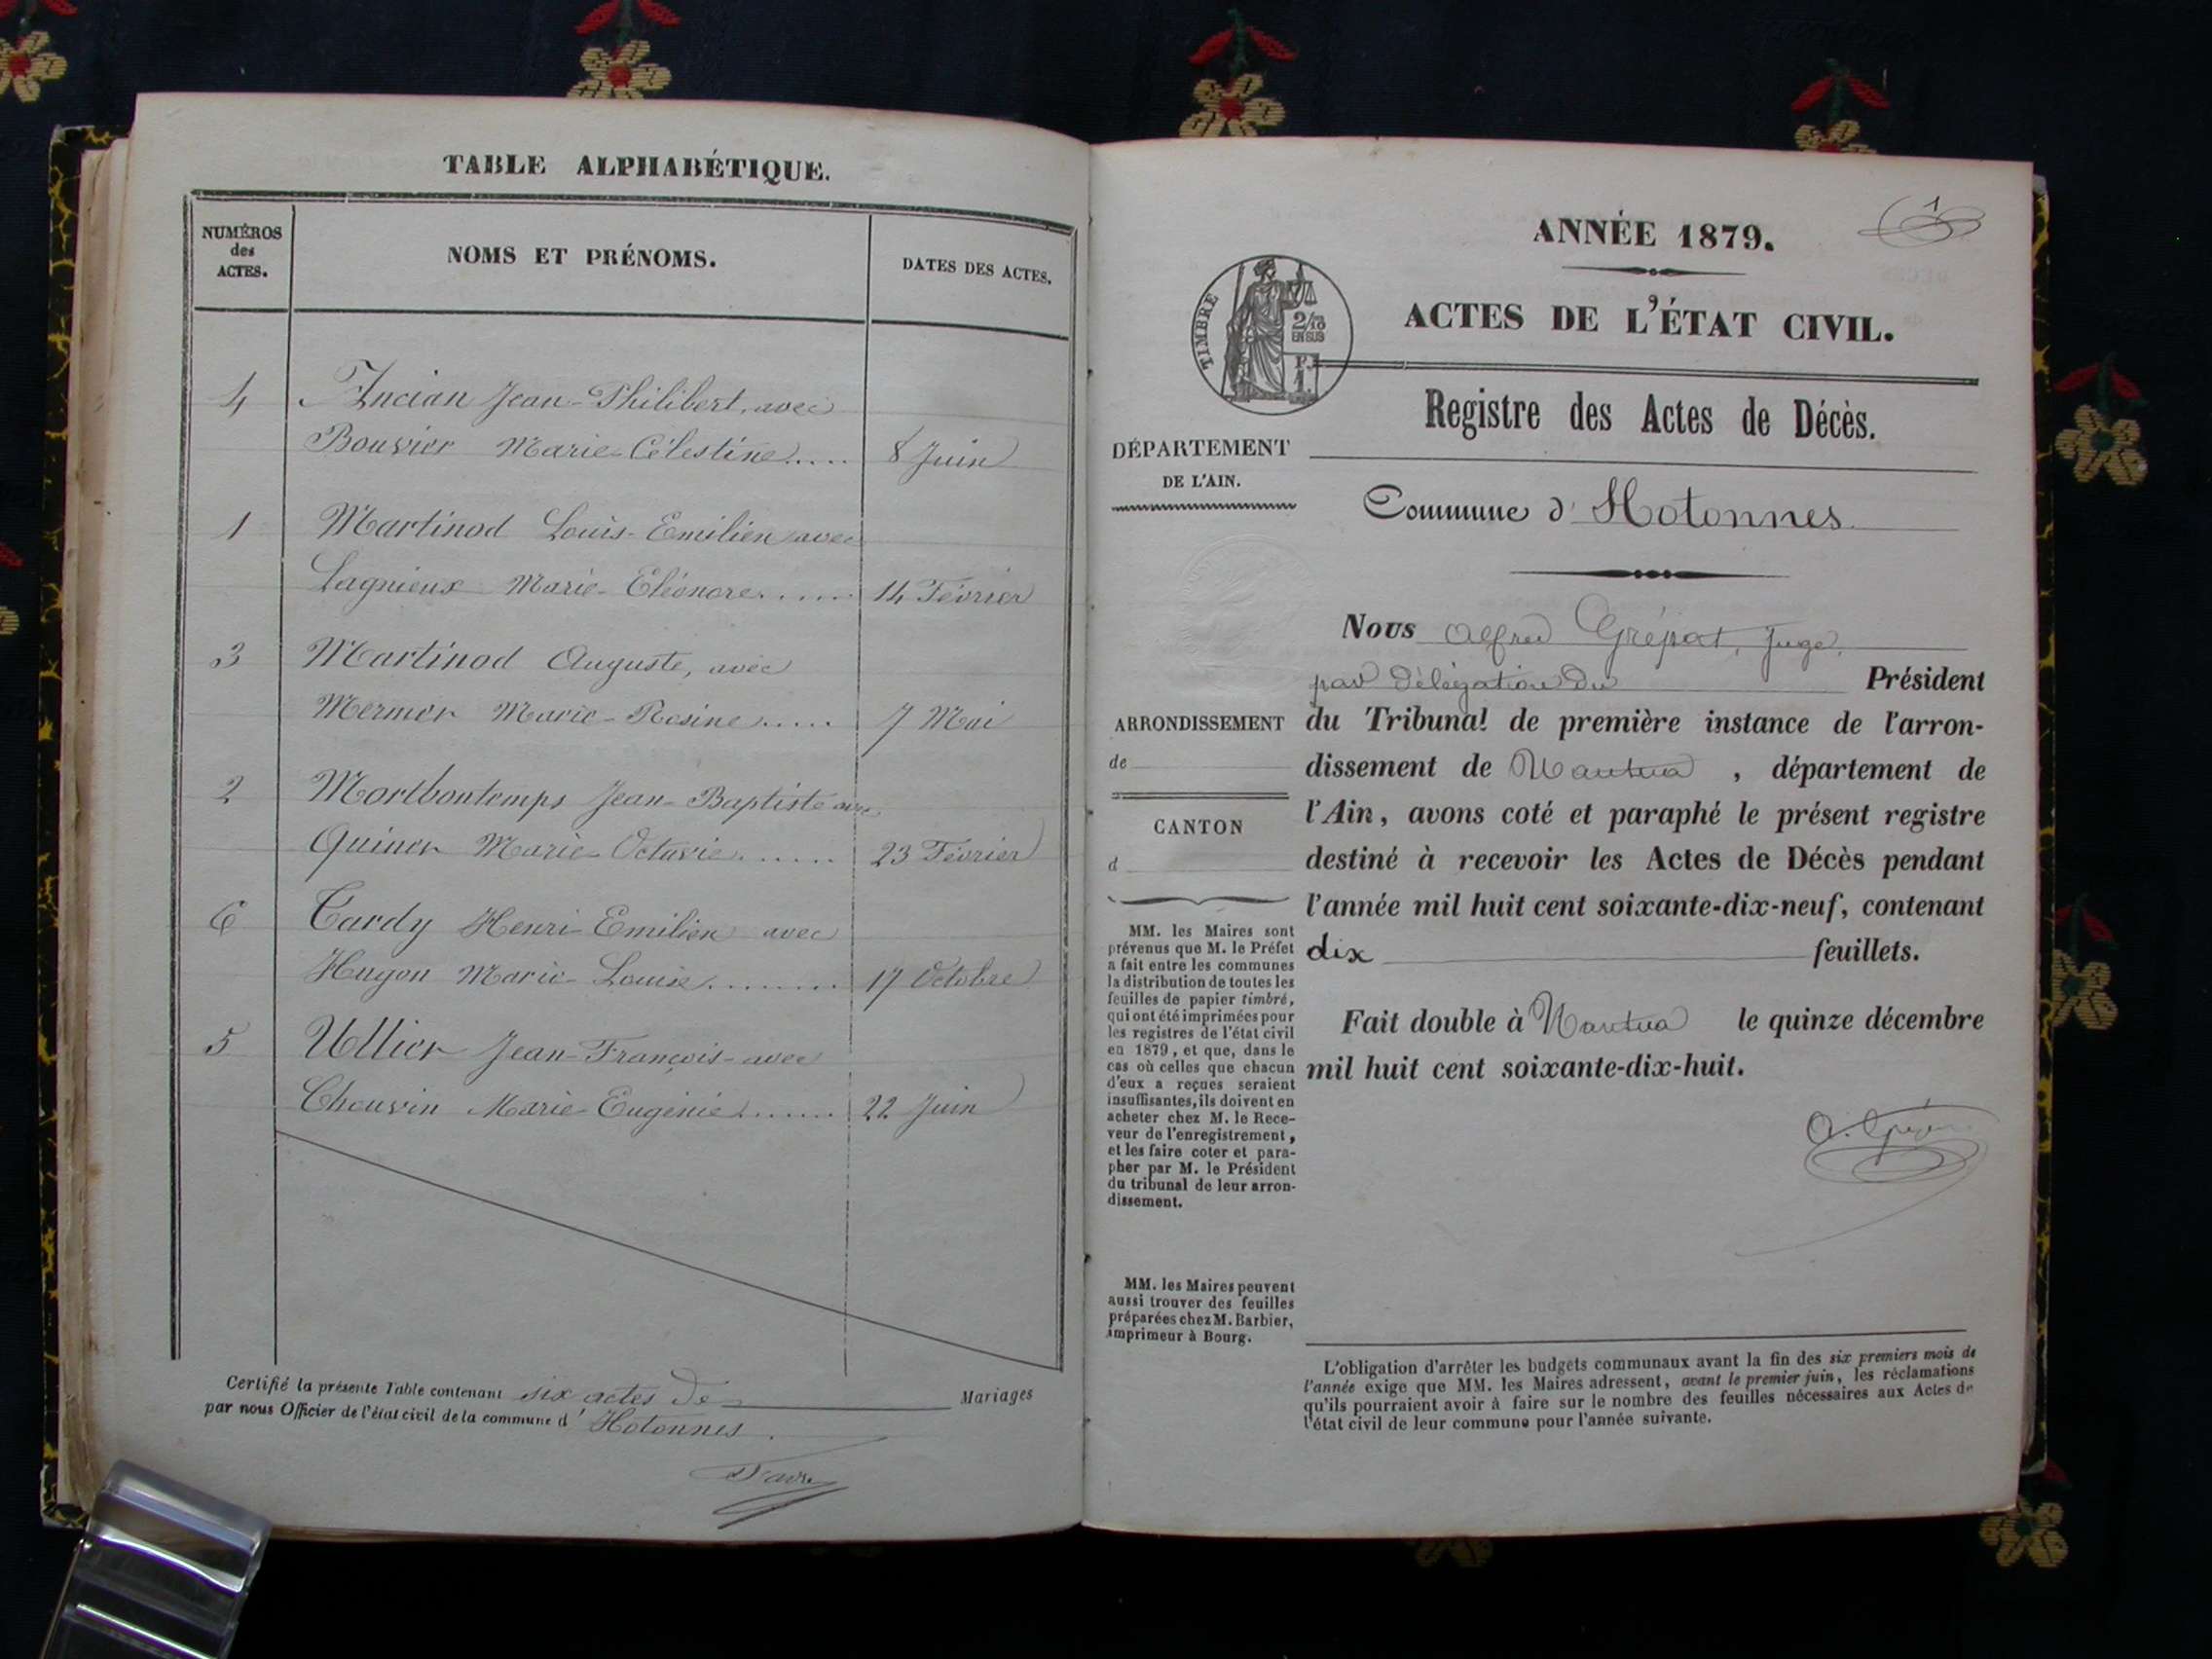 TABLE ALPHABÉTIQUE.
NUMÉROS
des
ACTES.
NOMS ET PRÉNOMS.
DATES DES ACTES.
4 Jean-Philibert, avec
Bouvier Marie-Célestine..... 8 Juin
1 Martinod Louis-Emilien avec
Lagnieux Marie-Eléonore...... 14 Février
3 Martinod Auguste, avec
Mermer Marie-Rosine..... 7 Mai
2 Mortbontemps Jean-Baptiste avec
Quiner Marie-Octavie....... 23 Février
6 Tardy Henri Emilien avec
Hugon Marie-Louise........ 17 Octobre
5 Ullier Jean-François-avec
Chauvin Marie-Eugénie....... 22 Juin
Certifié la présente Table contenant six actes de Mariages
par nous Officier de l'état civil de la commune d' Hotonnes.
1
ANNÉE 1879.
ACTES DE L'ÉTAT CIVIL.
TIMBRE
2/10
EN SUS
F.
1.
Registre des Actes de Décès.
DÉPARTEMENT
DE L'AIN.
Commune d'Hotonnes
ARRONDISSEMENT
de
CANTON
d
MM. les Maires sont
prévenus que M. le Préfet
a fait entre les communes
la distribution de toutes les
feuilles de papier timbré,
qui ont été imprimées pour
les registres de l'état civil
en 1879, et que, dans le
cas où celles que chacun
d'eux a reçues seraient
insuffisantes, ils doivent en
acheter chez M. le Rece-
veur de l'enregistrement,
et les faire coter et para-
pher par M. le Président
du tribunal de leur arron-
dissement.
MM. les Maires peuvent
aussi trouver des feuilles
préparées chez M. Barbier,
imprimeur à Bourg.
Nous Alfred Grépat, Juge,
par délégation du Président
du Tribunal de première instance de l'arron-
dissement de Nantua, département de
l'Ain, avons coté et paraphé le présent registre
destiné à recevoir les Actes de Décès pendant
l'année mil huit cent soixante-dix-neuf, contenant
dix feuillets.
Fait double à Nantua le quinze décembre
mil huit cent soixante-dix-huit.
L'obligation d'arrêter les budgets communaux avant la fin des six premiers mois de
l'année exige que MM. les Maires adressent, avant le premier juin, les réclamations
qu'ils pourraient avoir à faire sur le nombre des feuilles nécessaires aux Actes de
l'état civil de leur commune pour l'année suivante.